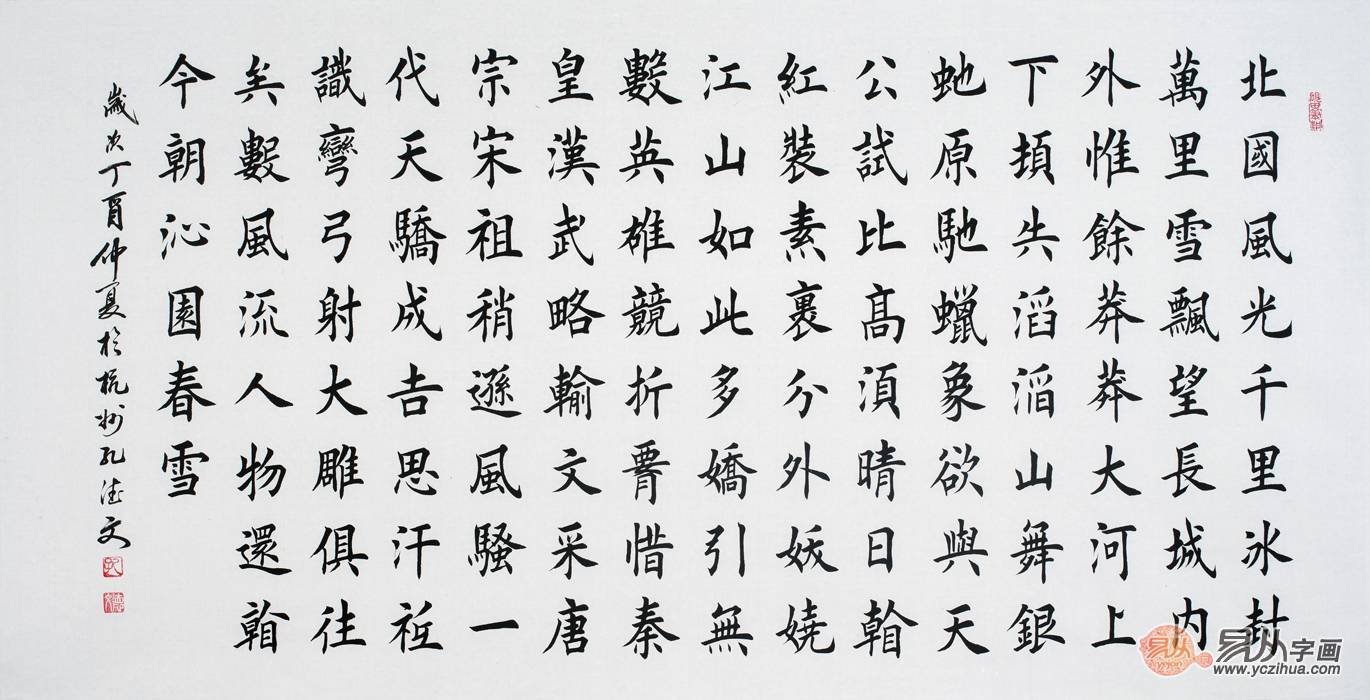 北國風光千里冰封
萬里雪飄望長城内
外惟餘莽莽大河上
下頓失滔滔山舞銀
虵原馳蠟象欲與天
公試比高須晴日看
紅裝素裹分外妖嬈
江山如此多嬌引無
數英雄競折腰惜秦
皇漢武略輸文采唐
宗宋祖稍遜風騷一
代天驕成吉思汗衹
識彎弓射大雕俱往
矣數風流人物還看
今朝沁園春雪
歲次丁酉仲夏於杭州孔德文
易从字画
www.yczihua.com